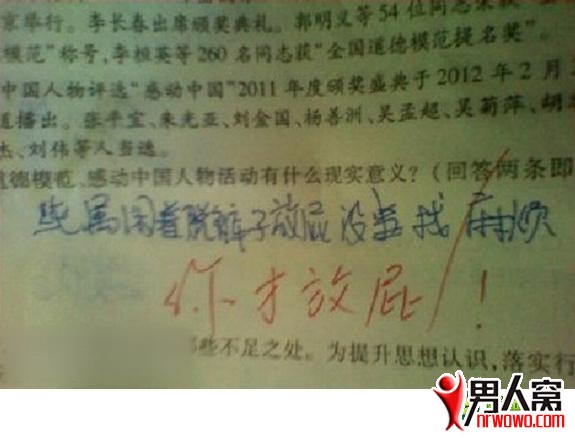 京举行。李长春出席颁奖典礼。郭明义等54位同志荣获
模范”称号,李桓英等260名同志获“全国道德模范提名奖”。
中国人物评选“感动中国”2011年度颁奖盛典于2012年2月
直播出。张平宜、朱光亚、刘金国、杨善洲、吴孟超、吴菊萍、胡
杰、刘伟等人当选。
道德模范、感动中国人物活动有什么现实意义?(回答两条即
纯属闲着脱裤子放屁没事找麻烦
你才放屁!
些不足之处。为提升思想认识,落实行
男人窝
nrwowo.com